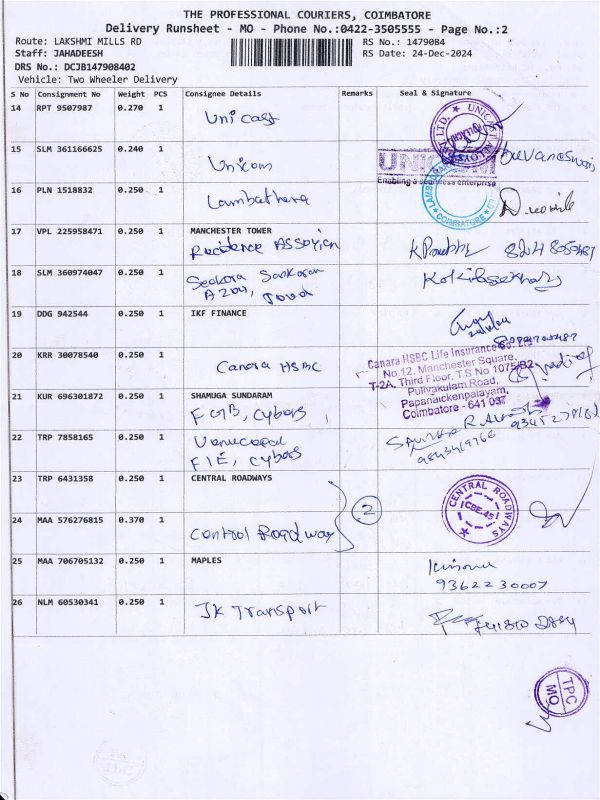 THE PROFESSIONAL COURIERS, COIMBATORE
Delivery Runsheet - MO - Phone No.:0422-3505555 - Page No.:2
Route: LAKSHMI MILLS RD RS No.: 1479084
Staff: JAHADEESH RS Date: 24-Dec-2024
DRS No.: DCJB147908402
Vehicle: Two Wheeler Delivery
S No Consignment No Weight PCS Consignee Details Remarks Seal & Signature
14 RPT 9507987 0.270 1 Unicast
15 SLM 361166625 0.240 1 Unicom UNICOM
Enabling a seamless enterprise
16 PLN 1518832 0.250 1 Lambathara COIMBATORE
17 VPL 225958471 0.250 1 MANCHESTER TOWER
Residence
18 SLM 360974047 0.250 1 Sankaran
A204,
19 DDG 942544 0.250 1 IKF FINANCE
20 KRR 30078540 0.250 1 Canara HSBC
Canara HSBC Life Insurance Co. Ltd
No.12, Manchester Square,
T-2A, Third Floor, T.S No 1075/B2
Puliyakulam Road,
Papanaickenpalayam,
Coimbatore - 641 037
21 KUR 696301872 0.250 1 SHAMUGA SUNDARAM
22 TRP 7858165 0.250 1
F1E,
23 TRP 6431358 0.250 1 CENTRAL ROADWAYS
CENTRAL ROADWAYS
CBE-45
2
24 MAA 576276815 0.370 1 Central Roadway
25 MAA 706705132 0.250 1 MAPLES
9362230007
26 NLM 60530341 0.250 1 JK Transport
TPC
MO